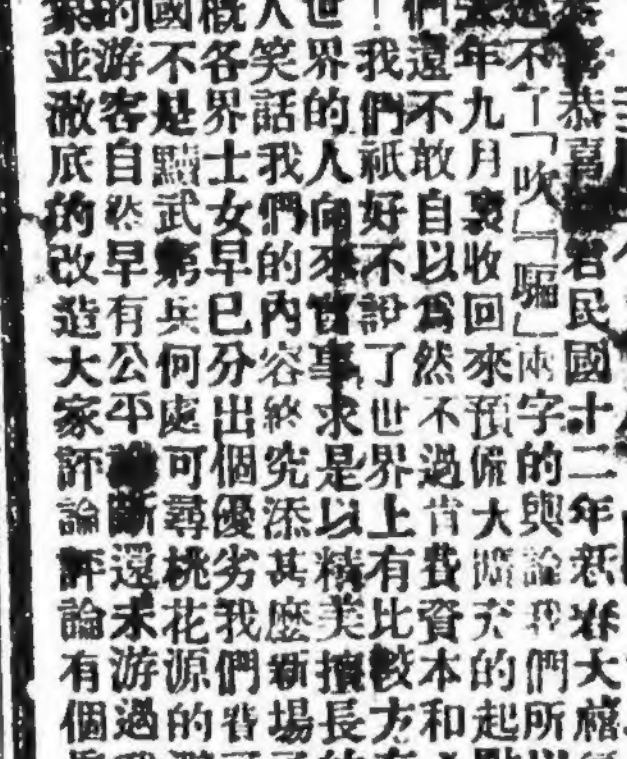 恭喜君民國十二年新春大禧
過不了「吹」「騙」兩字的輿論我們所
年九月裏收回來預備大擴充的起
們還不敢自以爲然不過肯費資本和
！我們祇好不說了世界上有比較方
世界的人向來實事求是以精美擅長
人笑話我們的內容終究添甚麽新場
概各界士女早已分出個優劣我們看
國不是黷武窮兵何處可尋桃花源的
的游客自然早有公平斷還未游過
象並澈底的改造大家評論評論有個